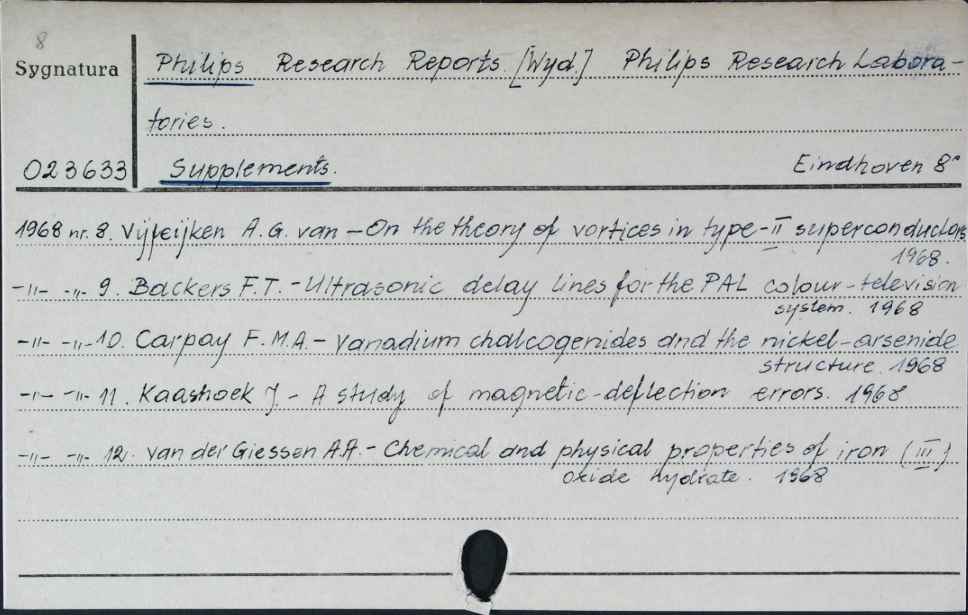 8
Sygnatura
Philips Research Reports. [Wyd.] Philips Research Labora-
tories.
023633 Supplements. Eindhoven 8°
1968 nr. 8. Vijfeijken A.G. van - On the theory of vortices in type-II superconductors
1968.
-"- -"- 9. Backers F.T. - Ultrasonic delay lines for the PAL colour-television
system. 1968
-"- -"- 10. Carpay F.M.A. - Vanadium chalcogenides and the nickel-arsenide
structure. 1968
-"- -"- 11. Kaashoek J. - A study of magnetic-deflection errors. 1968
-"- -"- 12. van der Giessen A.A. - Chemical and physical properties of iron (III)
oxide hydrate. 1968